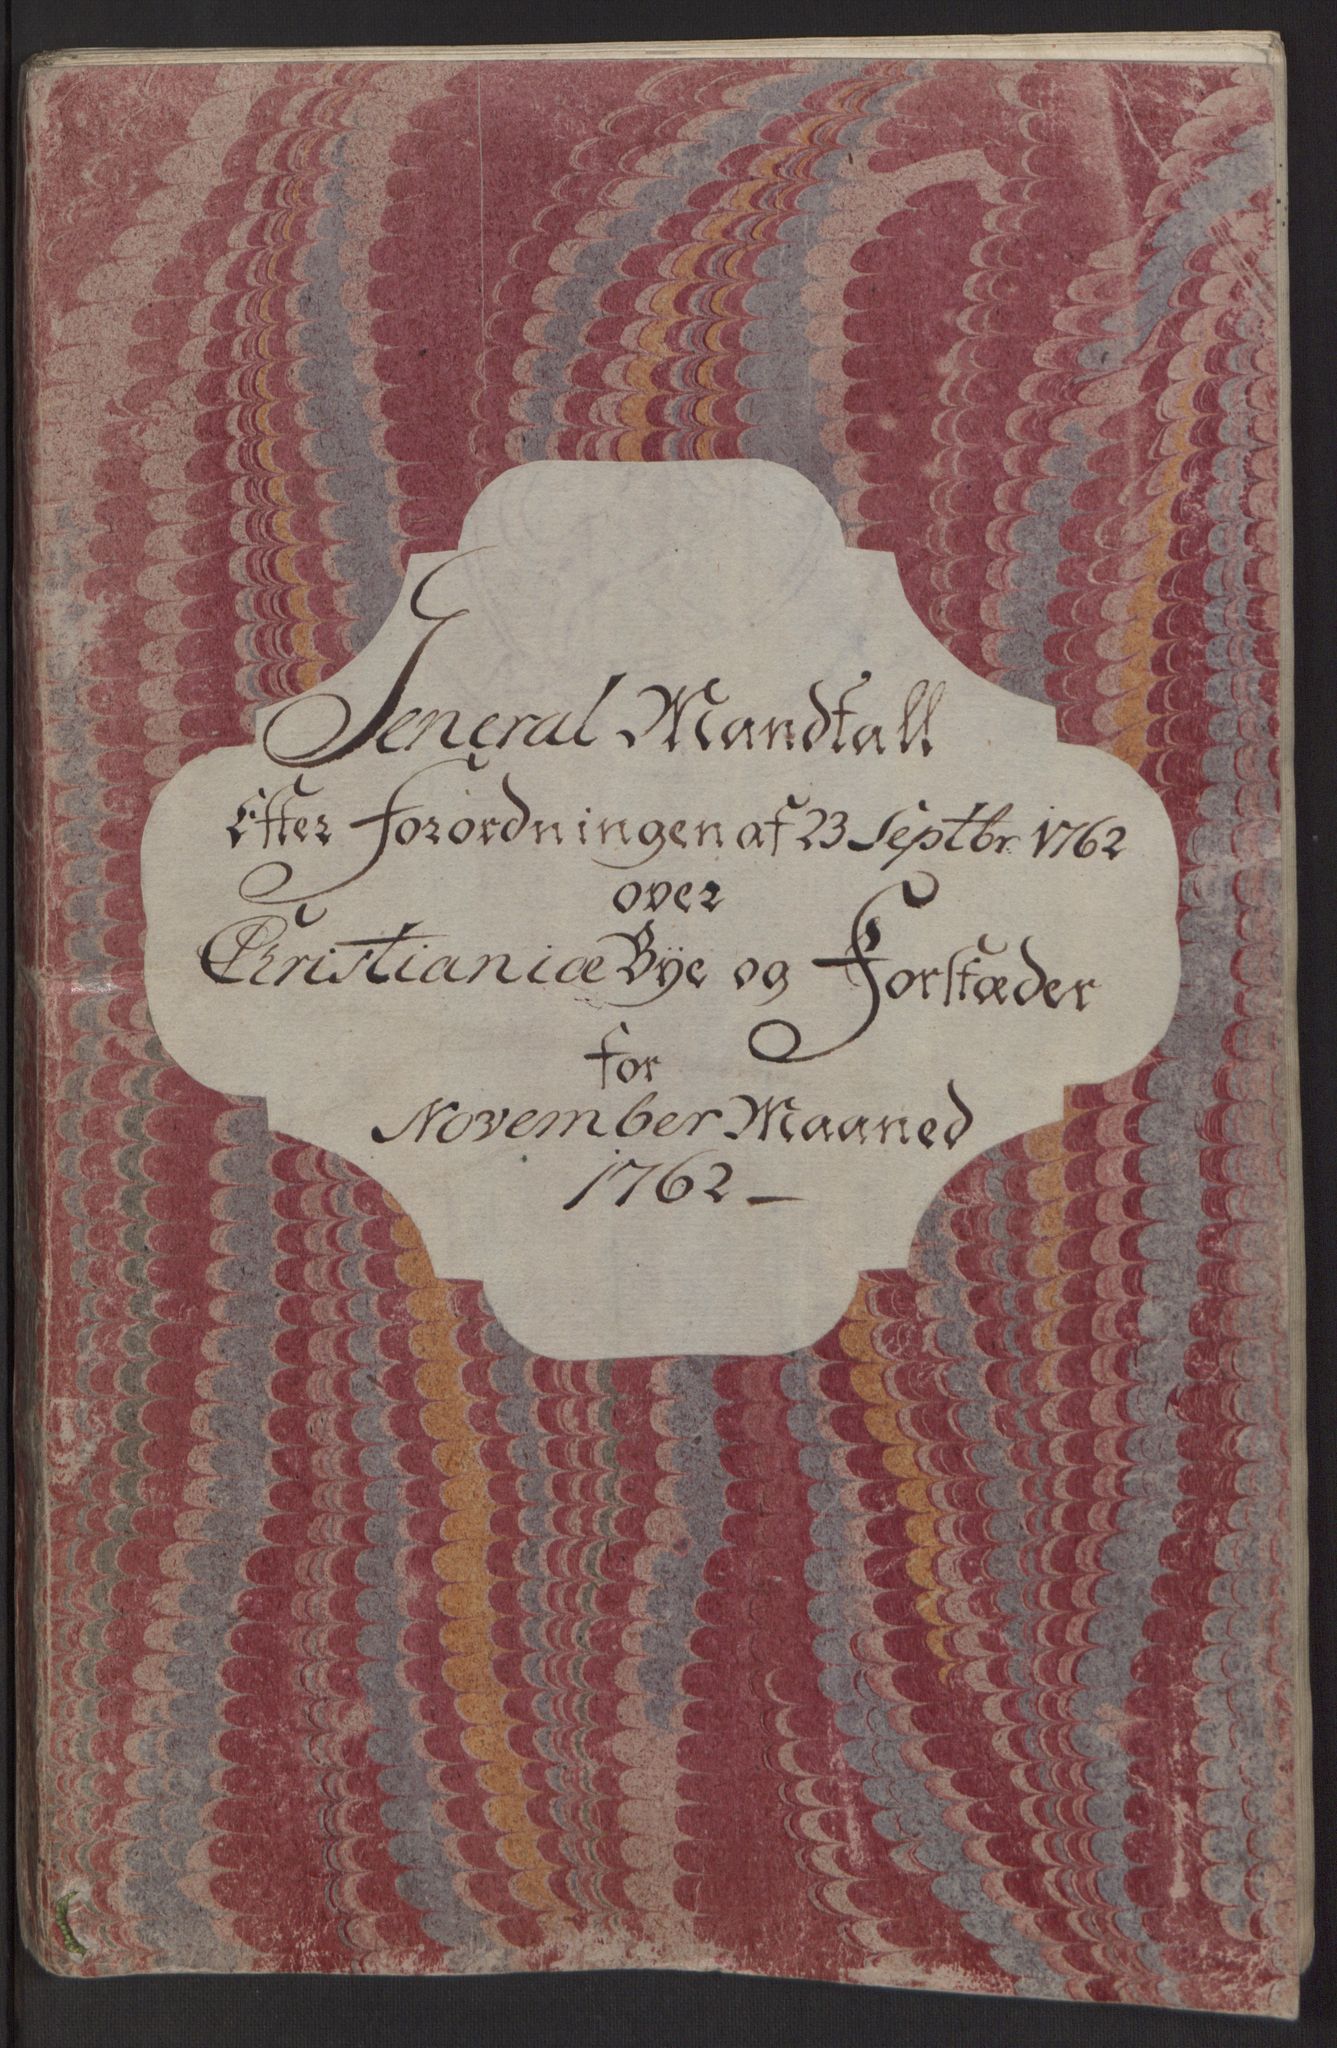 General Mandtall
Efter Forordningen af 23 Septbr. 1762
over
Christianiæ Bye og Forstæder
for
November Maaned
1762 –